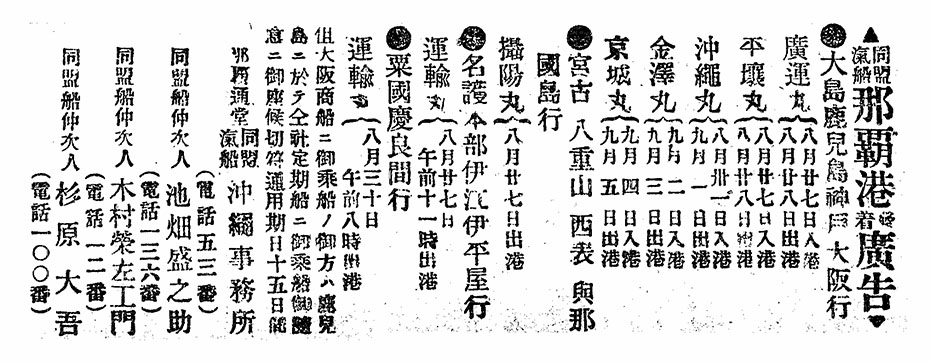 ▲同盟
氣船
那覇港發着廣告▼
●大島鹿兒島神戸大阪行
廣運丸
八月廿七日入港
八月廿八日出港
平壤丸
八月廿七日入港
八月廿八日出港
沖繩丸
八月卅一日入港
九月一日出港
金澤丸
九月二日入港
九月三日出港
京城丸
九月四日入港
九月五日出港
●宮古 八重山 西表 與那
國島行
攝陽丸 八月廿七日出港
●名護本部伊江伊平屋行
運輸丸
八月廿七日
午前十一時出港
●粟國慶良間行
運輸丸
八月三十日
午前八時出港
但大阪商船ニ御乘船ノ御方ハ鹿兒
島ニ於テ仝社定期船ニ御乘船御隨
意ニ御座候切符通用期日十五日間
那覇通堂
同盟
氣船
沖繩事務所
(電話五三番)
同盟船仲次人 池畑盛之助
(電話一三六番)
同盟船仲次人 木村榮左工門
(電話一二番)
同盟船仲次人 杉原大吾
(電話一〇〇番)